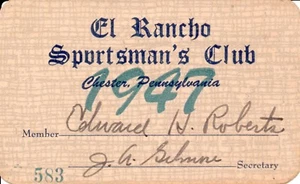 El Rancho
Sportsman's Club
Chester, Pennsylvania
1947
Member Edward H. Roberts
J. A. Gilmore
583 Secretary